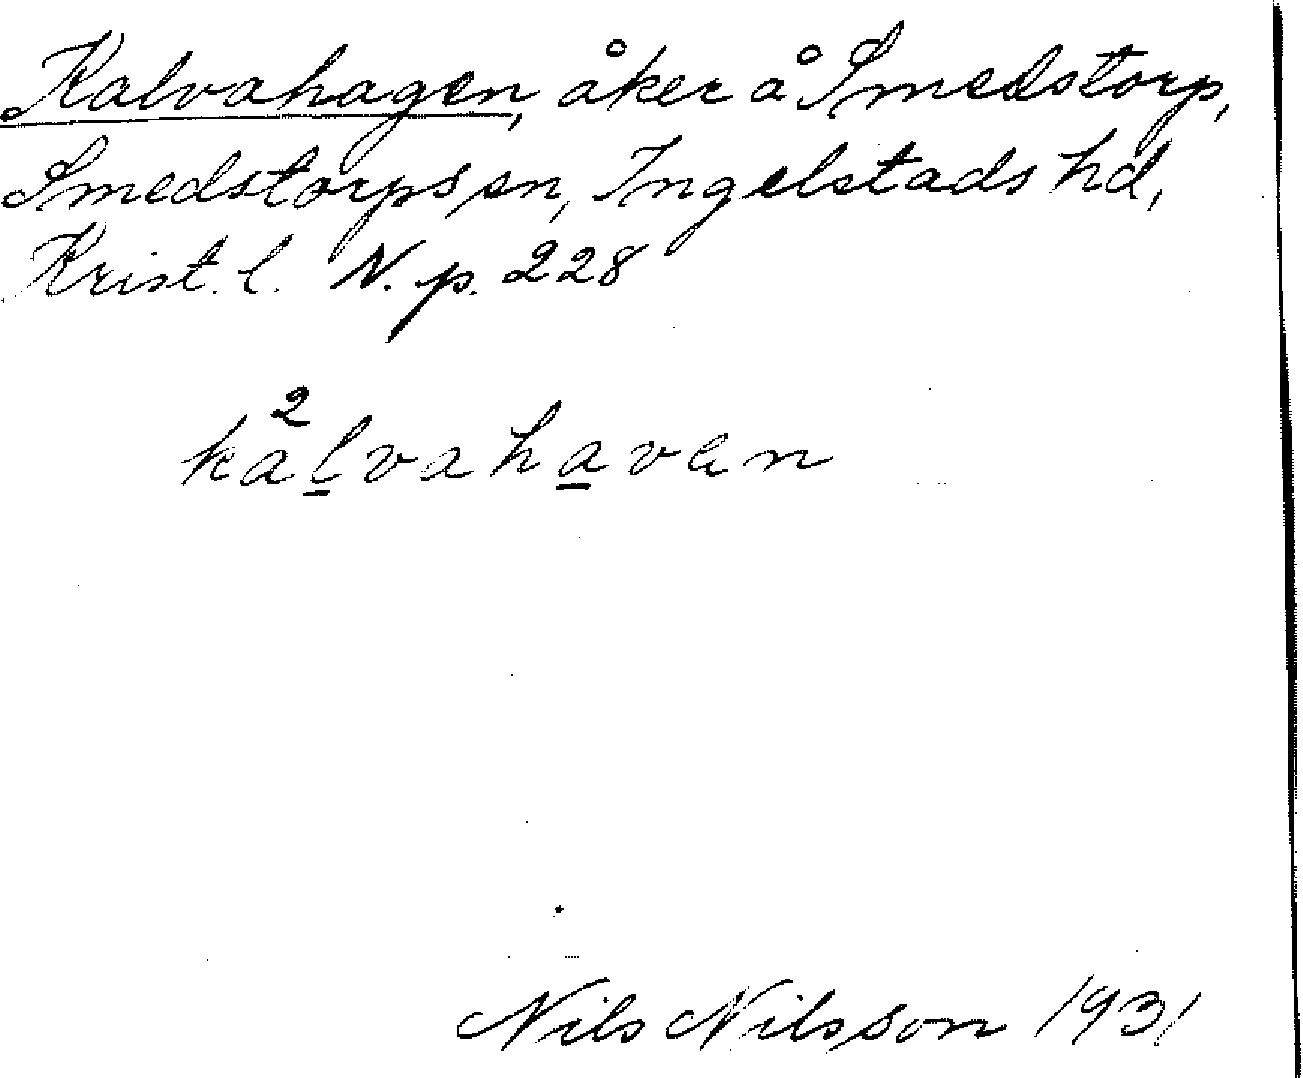 Kalvahagen, åker å Smedstorp,
Smedstorps sn, Ingelstads hd,
Krist. l. N. p. 228
2
kalvahavan
Nils Nilsson 1931